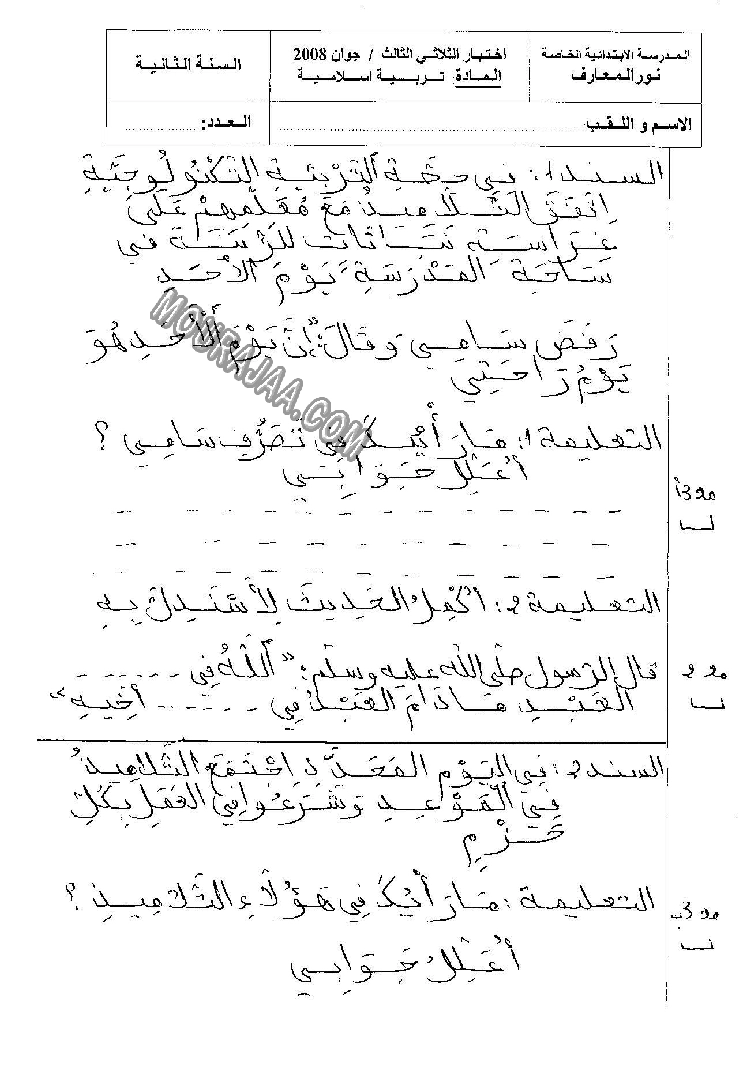 المدرسة الابتدائية الخاصة
نور المعارف
اختبار الثلاثي الثالث / جوان 2008
المادة: تربية اسلامية
السنة الثانية
الاسم و اللقب
العدد:
السند 1: في حِصَّةِ التَّرْبِيَةِ التِّكْنُولُوجِيَّةِ
اِتَّفَقَ التَّلَامِيذُ مَعَ مُعَلِّمِهِمْ عَلَى
غِرَاسَةِ نَبَاتَاتٍ لِلزِّينَةِ في
سَاحَةِ المَدْرَسَةِ يَوْمَ الأَحَدِ
رَفَضَ سَامِي وَقَالَ: "إِنَّ يَوْمَ الأَحَدِ هُوَ
يَوْمُ رَاحَتِي
MOURAJAA.COM
التعليمة 1: مَا رَأْيُكَ في تَصَرُّفِ سَامِي ؟
أُعَلِّلُ جَوَابِي
مع 3أ
التعليمة 2: أُكْمِلُ الحَدِيثَ لِأَسْتَدِلَّ بِهِ
قال الرّسول صلّى الله عليه وسلّم: "اَللَّهُ فِي
العَبْدِ مَا دَامَ العَبْدُ فِي أَخِيهِ"
مع 2
السند 2: فِي اليَوْمِ المُحَدَّدِ اِجْتَمَعَ التَّلَامِيذُ
فِي المَوْعِدِ وَشَرَعُوا فِي العَمَلِ بِكُلِّ
حَزْمٍ
التعليمة: مَا رَأْيُكَ فِي هَؤُلَاءِ التَّلَامِيذِ ؟
مع 3ب
أُعَلِّلُ جَوَابِي